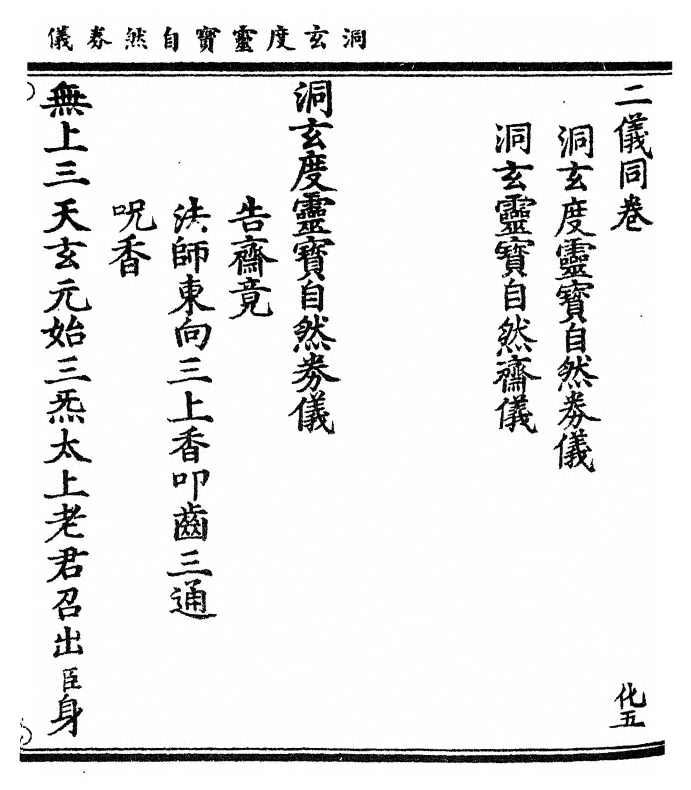 洞玄度靈寶自然券儀
二儀同卷 化五
洞玄度靈寶自然券儀
洞玄靈寶自然齋儀
洞玄度靈寶自然券儀
告齋竟
法師東向三上香叩齒三通
呪香
無上三天玄元始三炁太上老君召出臣身